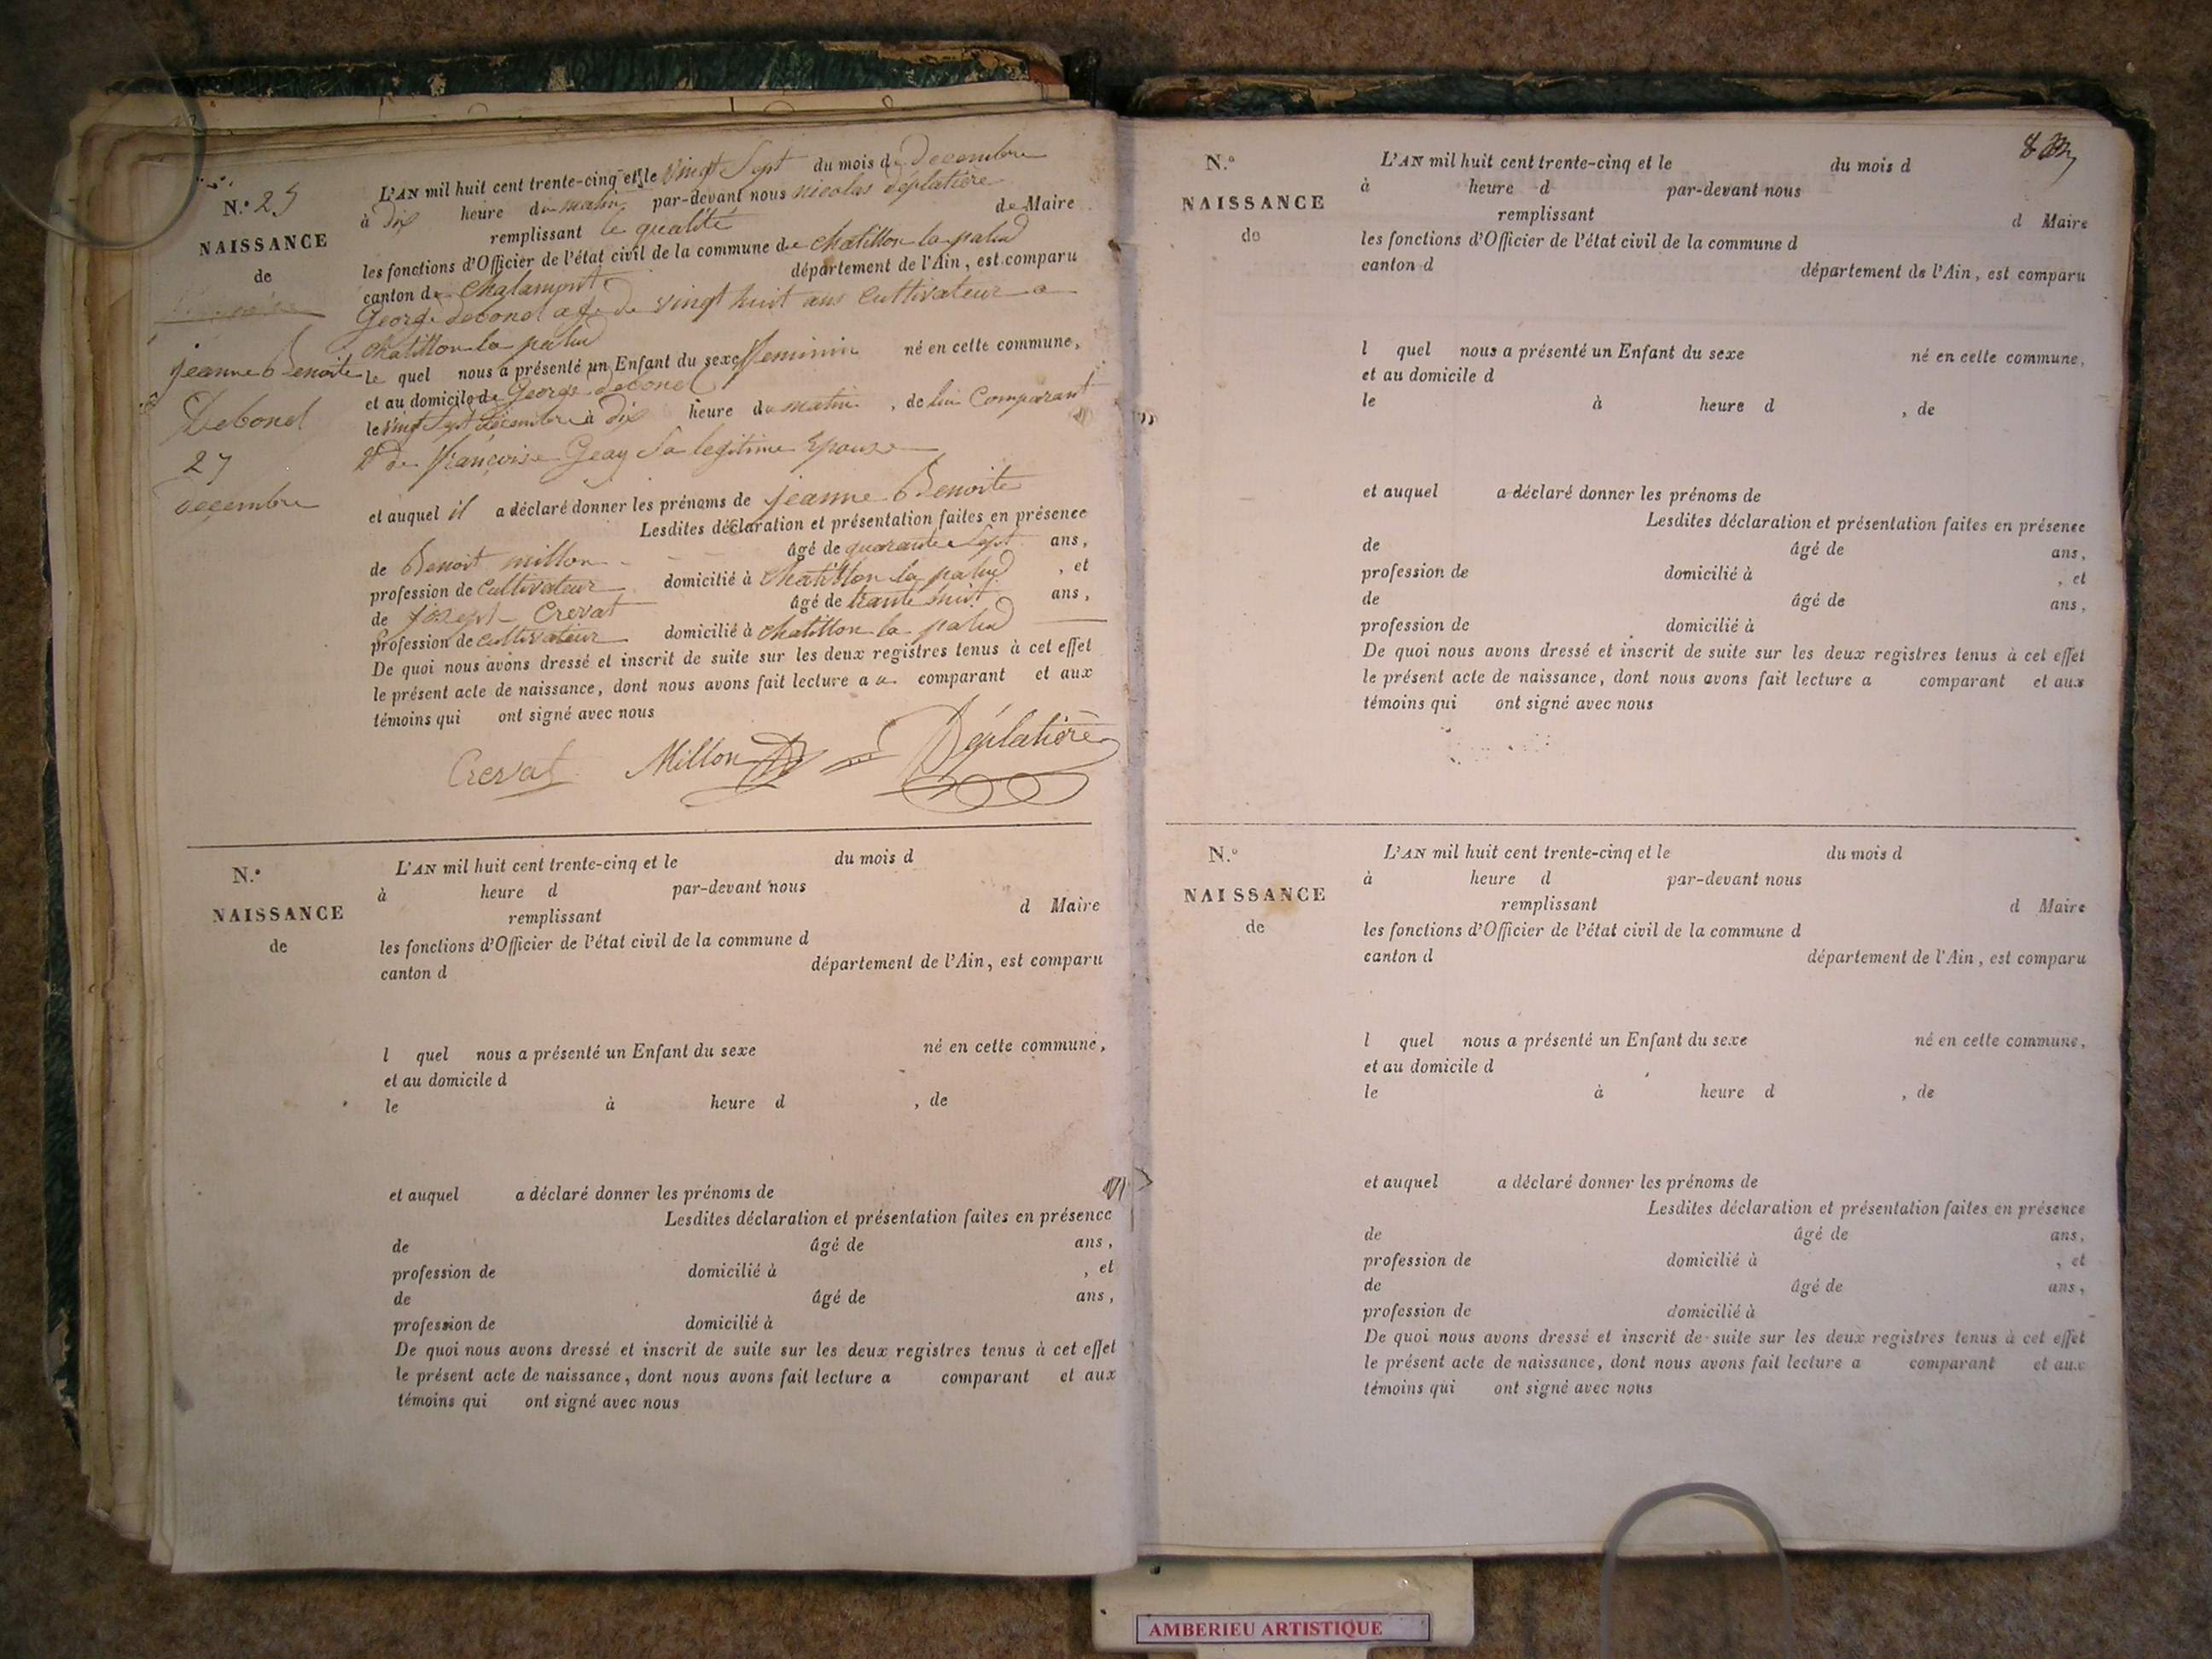 N.° 25
NAISSANCE
de
jeanne Benoite
Debond
27
decembre
L'AN mil huit cent trente-cinq et le vingt Sept du mois de Decembre
à dix heure du matin par-devant nous nicolas déplatière
remplissant le qualité de Maire
les fonctions d'Officier de l'état civil de la commune de chatillon la palud
canton de chalamont département de l'Ain, est comparu
George Debond age de vingt huit ans Cultivateur a
chatillon la palud
le quel nous a présenté un Enfant du sexe feminin né en cette commune,
et au domicile de George debond
le vingt Sept decembre à dix heure du matin, de lui Comparant
& de françoise Geay Sa legitime Epouse
et auquel il a déclaré donner les prénoms de jeanne Benoite
Lesdites déclaration et présentation faites en présence
de Benoit millon âgé de quarante Sept ans,
profession de Cultivateur domicilié à Chatillon la palud, et
de joseph Crevat âgé de trante huit ans,
profession de cultivateur domicilié à chatillon la palud
De quoi nous avons dressé et inscrit de suite sur les deux registres tenus à cet effet
le présent acte de naissance, dont nous avons fait lecture a a comparant et aux
témoins qui ont signé avec nous
Crevat Millon Déplatière
N.°
NAISSANCE
de
L'AN mil huit cent trente-cinq et le du mois d
à heure d par-devant nous
remplissant d Maire
les fonctions d'Officier de l'état civil de la commune d
canton d département de l'Ain, est comparu
l quel nous a présenté un Enfant du sexe né en cette commune,
et au domicile d
le à heure d , de
et auquel a déclaré donner les prénoms de
Lesdites déclaration et présentation faites en présence
de âgé de ans,
profession de domicilié à , et
de âgé de ans,
profession de domicilié à
De quoi nous avons dressé et inscrit de suite sur les deux registres tenus à cet effet
le présent acte de naissance, dont nous avons fait lecture a comparant et aux
témoins qui ont signé avec nous
N.°
NAISSANCE
de
L'AN mil huit cent trente-cinq et le du mois d
à heure d par-devant nous
remplissant d Maire
les fonctions d'Officier de l'état civil de la commune d
canton d département de l'Ain, est comparu
l quel nous a présenté un Enfant du sexe né en cette commune,
et au domicile d
le à heure d , de
et auquel a déclaré donner les prénoms de
Lesdites déclaration et présentation faites en présence
de âgé de ans,
profession de domicilié à , et
de âgé de ans,
profession de domicilié à
De quoi nous avons dressé et inscrit de suite sur les deux registres tenus à cet effet
le présent acte de naissance, dont nous avons fait lecture a comparant et aux
témoins qui ont signé avec nous
N.°
NAISSANCE
de
L'AN mil huit cent trente-cinq et le du mois d
à heure d par-devant nous
remplissant d Maire
les fonctions d'Officier de l'état civil de la commune d
canton d département de l'Ain, est comparu
l quel nous a présenté un Enfant du sexe né en cette commune,
et au domicile d
le à heure d , de
et auquel a déclaré donner les prénoms de
Lesdites déclaration et présentation faites en présence
de âgé de ans,
profession de domicilié à , et
de âgé de ans,
profession de domicilié à
De quoi nous avons dressé et inscrit de suite sur les deux registres tenus à cet effet
le présent acte de naissance, dont nous avons fait lecture a comparant et aux
témoins qui ont signé avec nous
AMBERIEU ARTISTIQUE